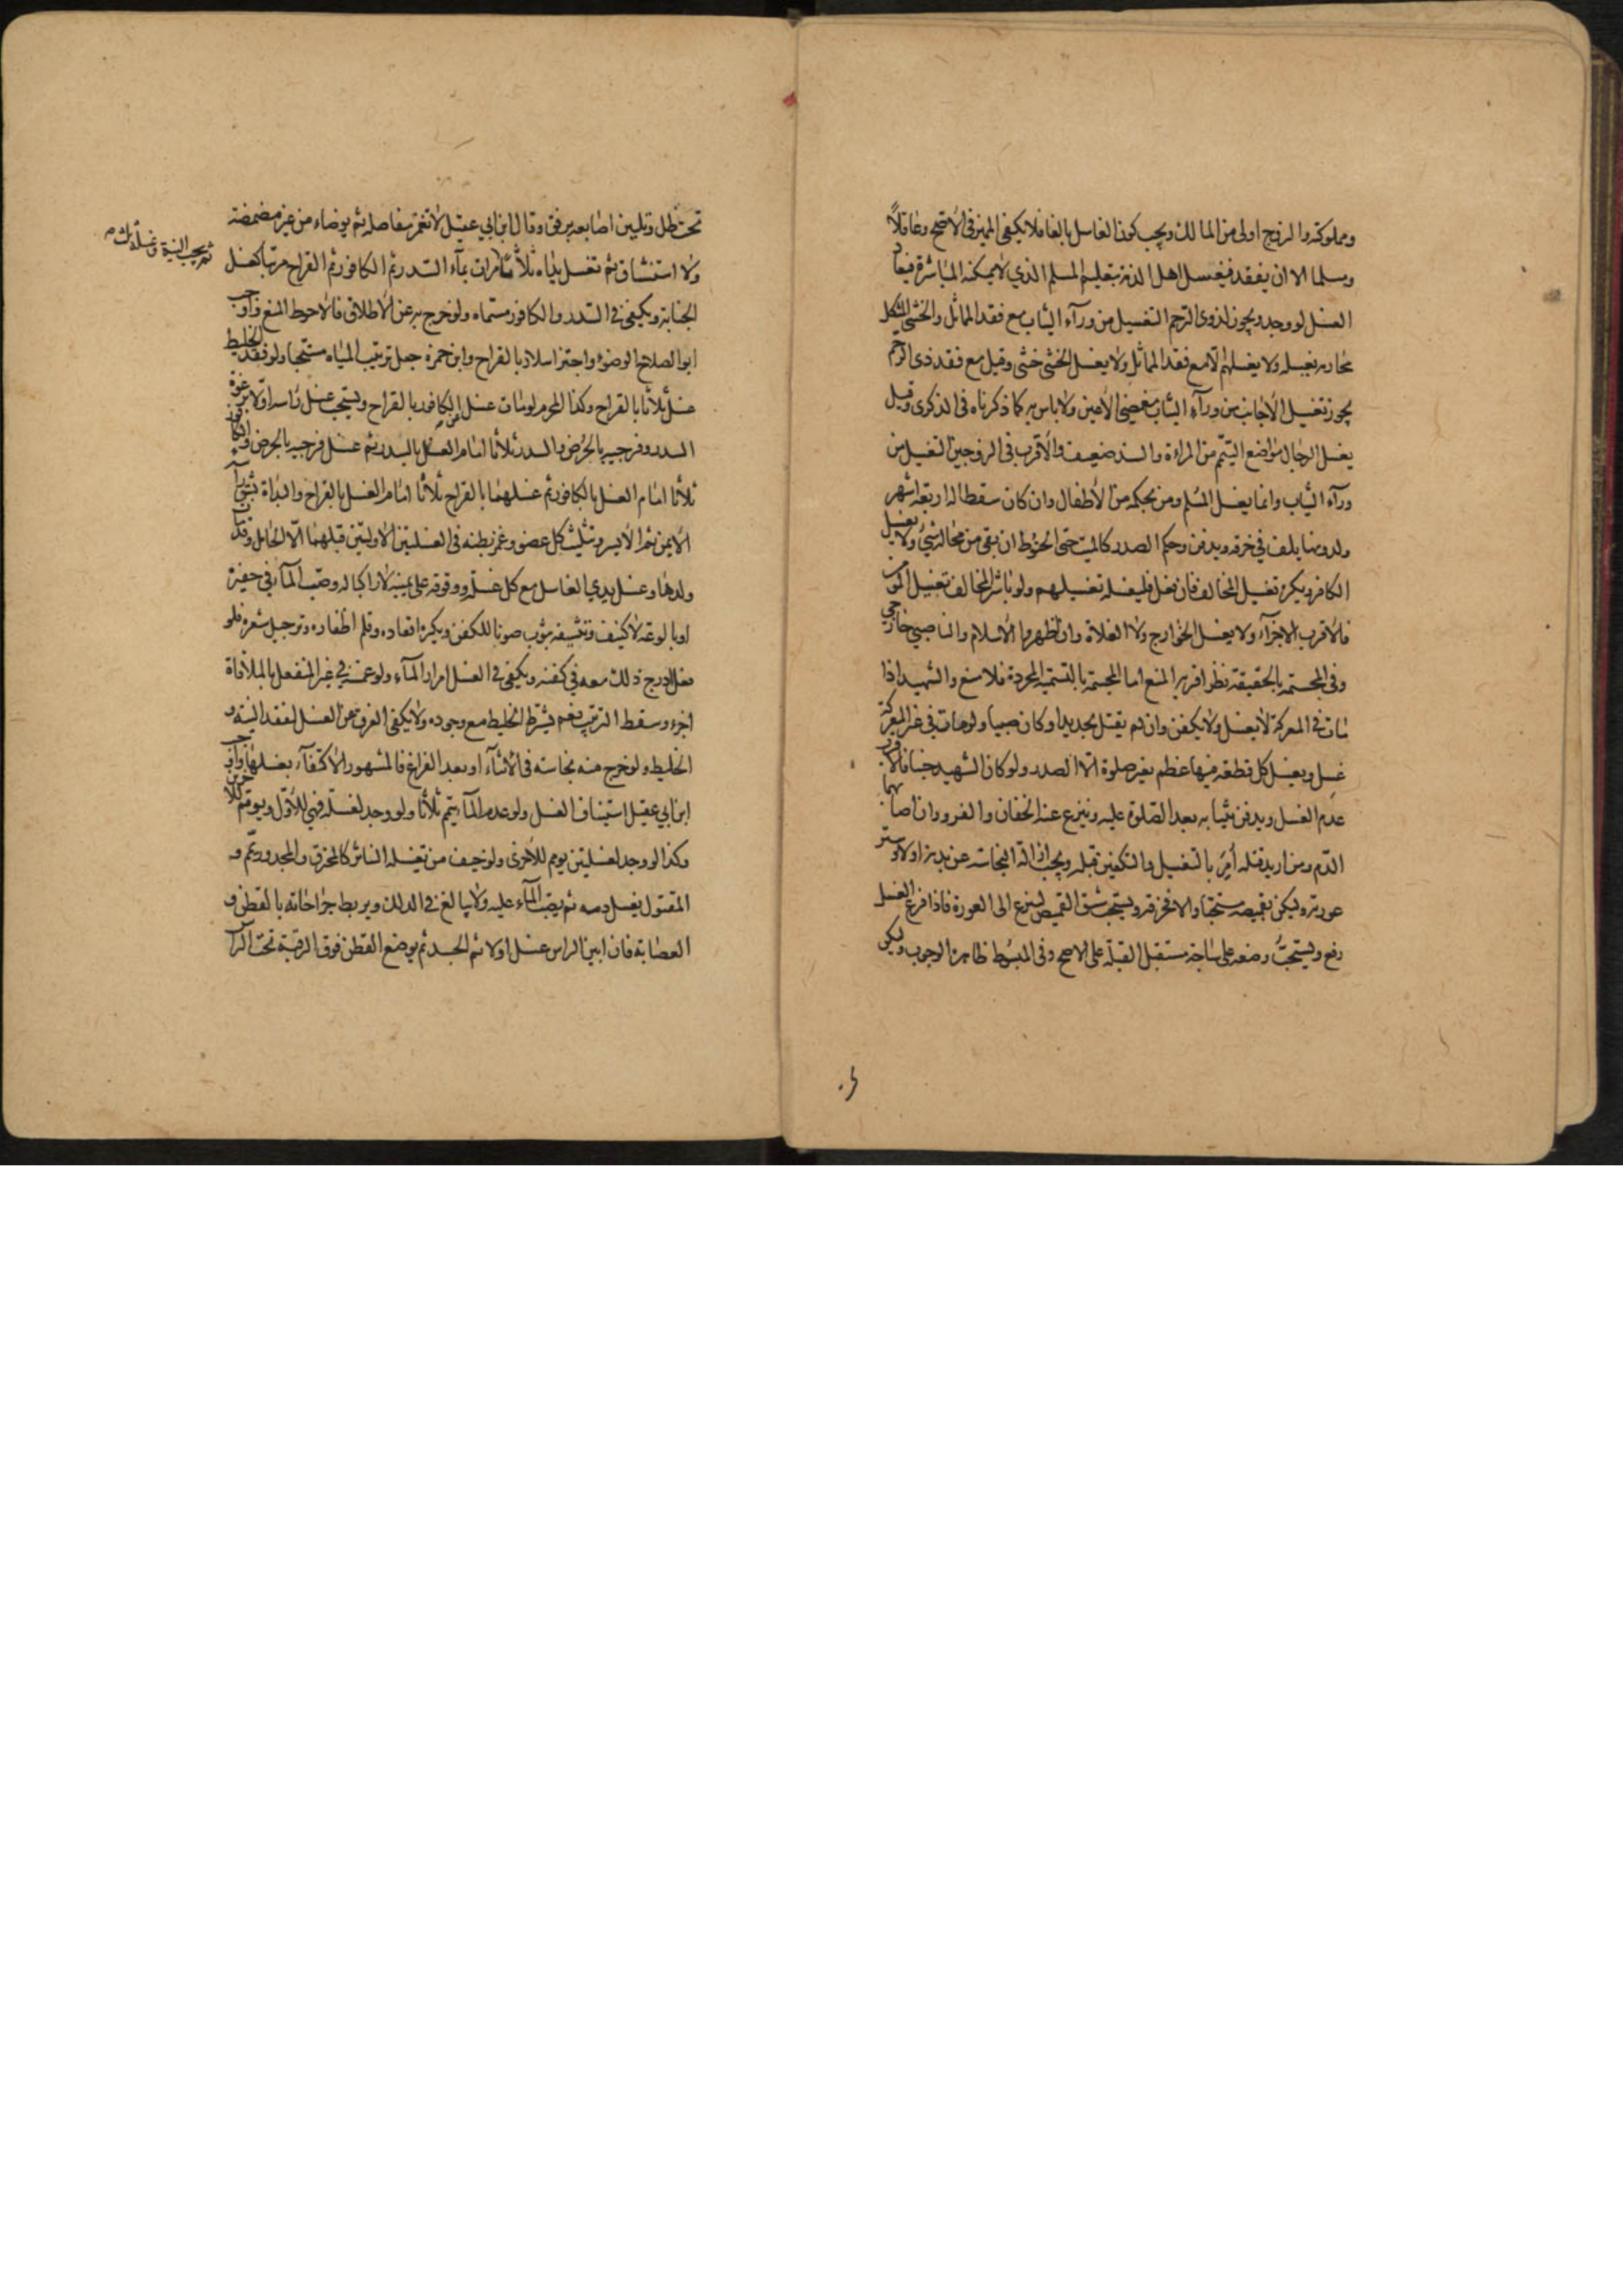 ومملوكته والزوج اولى من المالك ويجب كون الغاسل بالغا فلا يكفي المميز في الاصح وعاقلاً
ومسلما الا ان يفقد فيغسل اهل الذمة بتعليم المسلم الذي لا يمكنه المباشرة فيعاد
الغسل لو وجد ويجوز لذوي الرحم التغسيل من ورآء الثياب مع فقد المماثل والخنثى المشكل
محارمه بغسله ولا يغسلهم الّا مع فقد المماثل ولا يغسل الخنثى خنثى وقيل مع فقد ذي الرحم
يجوز تغسيل الاجانب من ورآء الثياب مغمضي الاعين ولا باس به كما ذكرناه في الذكرى وقيل
يغسل الرجال مواضع التيمم من المراة والسند ضعيف والاقرب في الزوجين التغسيل من
ورآء الثياب وانما يغسل المسلم ومن بحكمه من الاطفال وان كان سقطا له اربعة اشهر
ولدونها يلف في خرقة ويدفن وحكم الصدر كالميت حتى الحنوط ان بقي من محاله شئ ولا يغسل
الكافر ويكره تغسيل المخالف فان فعل فليغسله تغسيلهم ولو باشر المخالف تغسيل المؤمن
فالاقرب الاجزآء ولا يغسل الخوارج ولا الغلاة وان اظهروا الاسلام والناصبي خارجي
وفي المجسمة بالحقيقة نظر اقربه المنع اما المجسمة بالتسمية المجردة فلا منع والشهيد اذا
مات في المعركة لا يغسل ولا يكفن وان لم يقتل بحديد او كان صبيا ولو مات في غير المعركة
غسل ويغسل كل قطعة فيها عظم بغير صلوة الّا الصدر ولو كان الشهيد جنبا فالاقرب
عدم الغسل ويدفن بثيابه بعد الصلوة عليه وينزع عنه الخفان والفرو وان اصابهما
الدم ومن اريد قتله أُمِرَ بالتغسيل والتكفين قبله ويجب ازالة النجاسة عن بدنه اولا وستر
عورته وليكن بقميصه مستحبا والا فخرقة ويستحب شق القميص لينزع الى العورة فاذا فرغ الغسل
رفع ويستحبُّ وضعه على ساجة مستقبل القبلة على الاصح وفي المبسوط ظاهره الوجوب وليكن
تحت ظل وتليين اصابعه برفق وقال ابن ابي عقيل لا تغمز مفاصله ثم يوضاء من غير مضمضة
ولا استنشاق ثم تغسل يداه ثلاثا مرات بمآء السدر ثم الكافور ثم القراح مرتبا كغسل
ثم يجب النية وغسله ثلث
الجنابة ويكفي في السدر والكافور مسماه ولو خرج به عن الاطلاق فالاحوط المنع واوجب
ابو الصلاح الوضوء واجتزا سلار بالقراح وابن حمزة جعل ترتيب المياه مستحبا ولو فقد الخليط
غسل ثلاثا بالقراح وكذا المحرم لو مات غسل الكافور بالقراح ويستحب غسل راسه اولا برغوة
السدر وفرجيه بالحرض والسدر ثلاثا امام الغسل بالسدر ثم غسل فرجيه بالحرض والكافور
ثلاثا امام الغسل بالكافور ثم غسلهما بالقراح ثلاثا امام الغسل بالقراح والبداة بشق راسه
الايمن ثم الايسر وتثليث كل عضو وغمز بطنه في الغسلتين الاوليتين قبلهما الّا الحامل وقد مات
ولدها وغسل يدي الغاسل مع كل غسلة ووقوفه على يمينه لا راكبا له وصبّ المآء في حفيرة
او بالوعة لا كنيف وتنشيفه بثوب صونا للكفن ويكره اقعاده وقلم اظفاره وترجيل شعره فلو
فعل ادرج ذلك معه في كفنه ويكفي في الغسل امرار المآء ولو غمسه في غير المنفعل بالملاقاة
اجزء وسقط الترتيب نعم يشترط الخليط مع وجوده ولا يكفي الغرق عن الغسل لفقد النية و
الخليط ولو خرج منه نجاسة في الاثنآء او بعد الفراغ فالمشهور الاكتفآء بغسلها واوجب
ابن ابي عقيل استيناف الغسل ولو عدم المآء يتمم ثلاثا ولو وجد لغسلة فهي للاوّل ويومّم للاخرتين
وكذا لو وجد لغسلتين يومم للاخرى ولو خيف من تغسله التناثر كالمحترق والمجدور يمّم و
المقتول يغسل دمه ثم يصب المآء عليه ولا يبالغ في الدلك ويربط جراحاته بالقطن و
العصابة فان ابين الراس غسل اولا ثم الجسد ثم يوضع القطن فوق الرقبة تحت الرآ